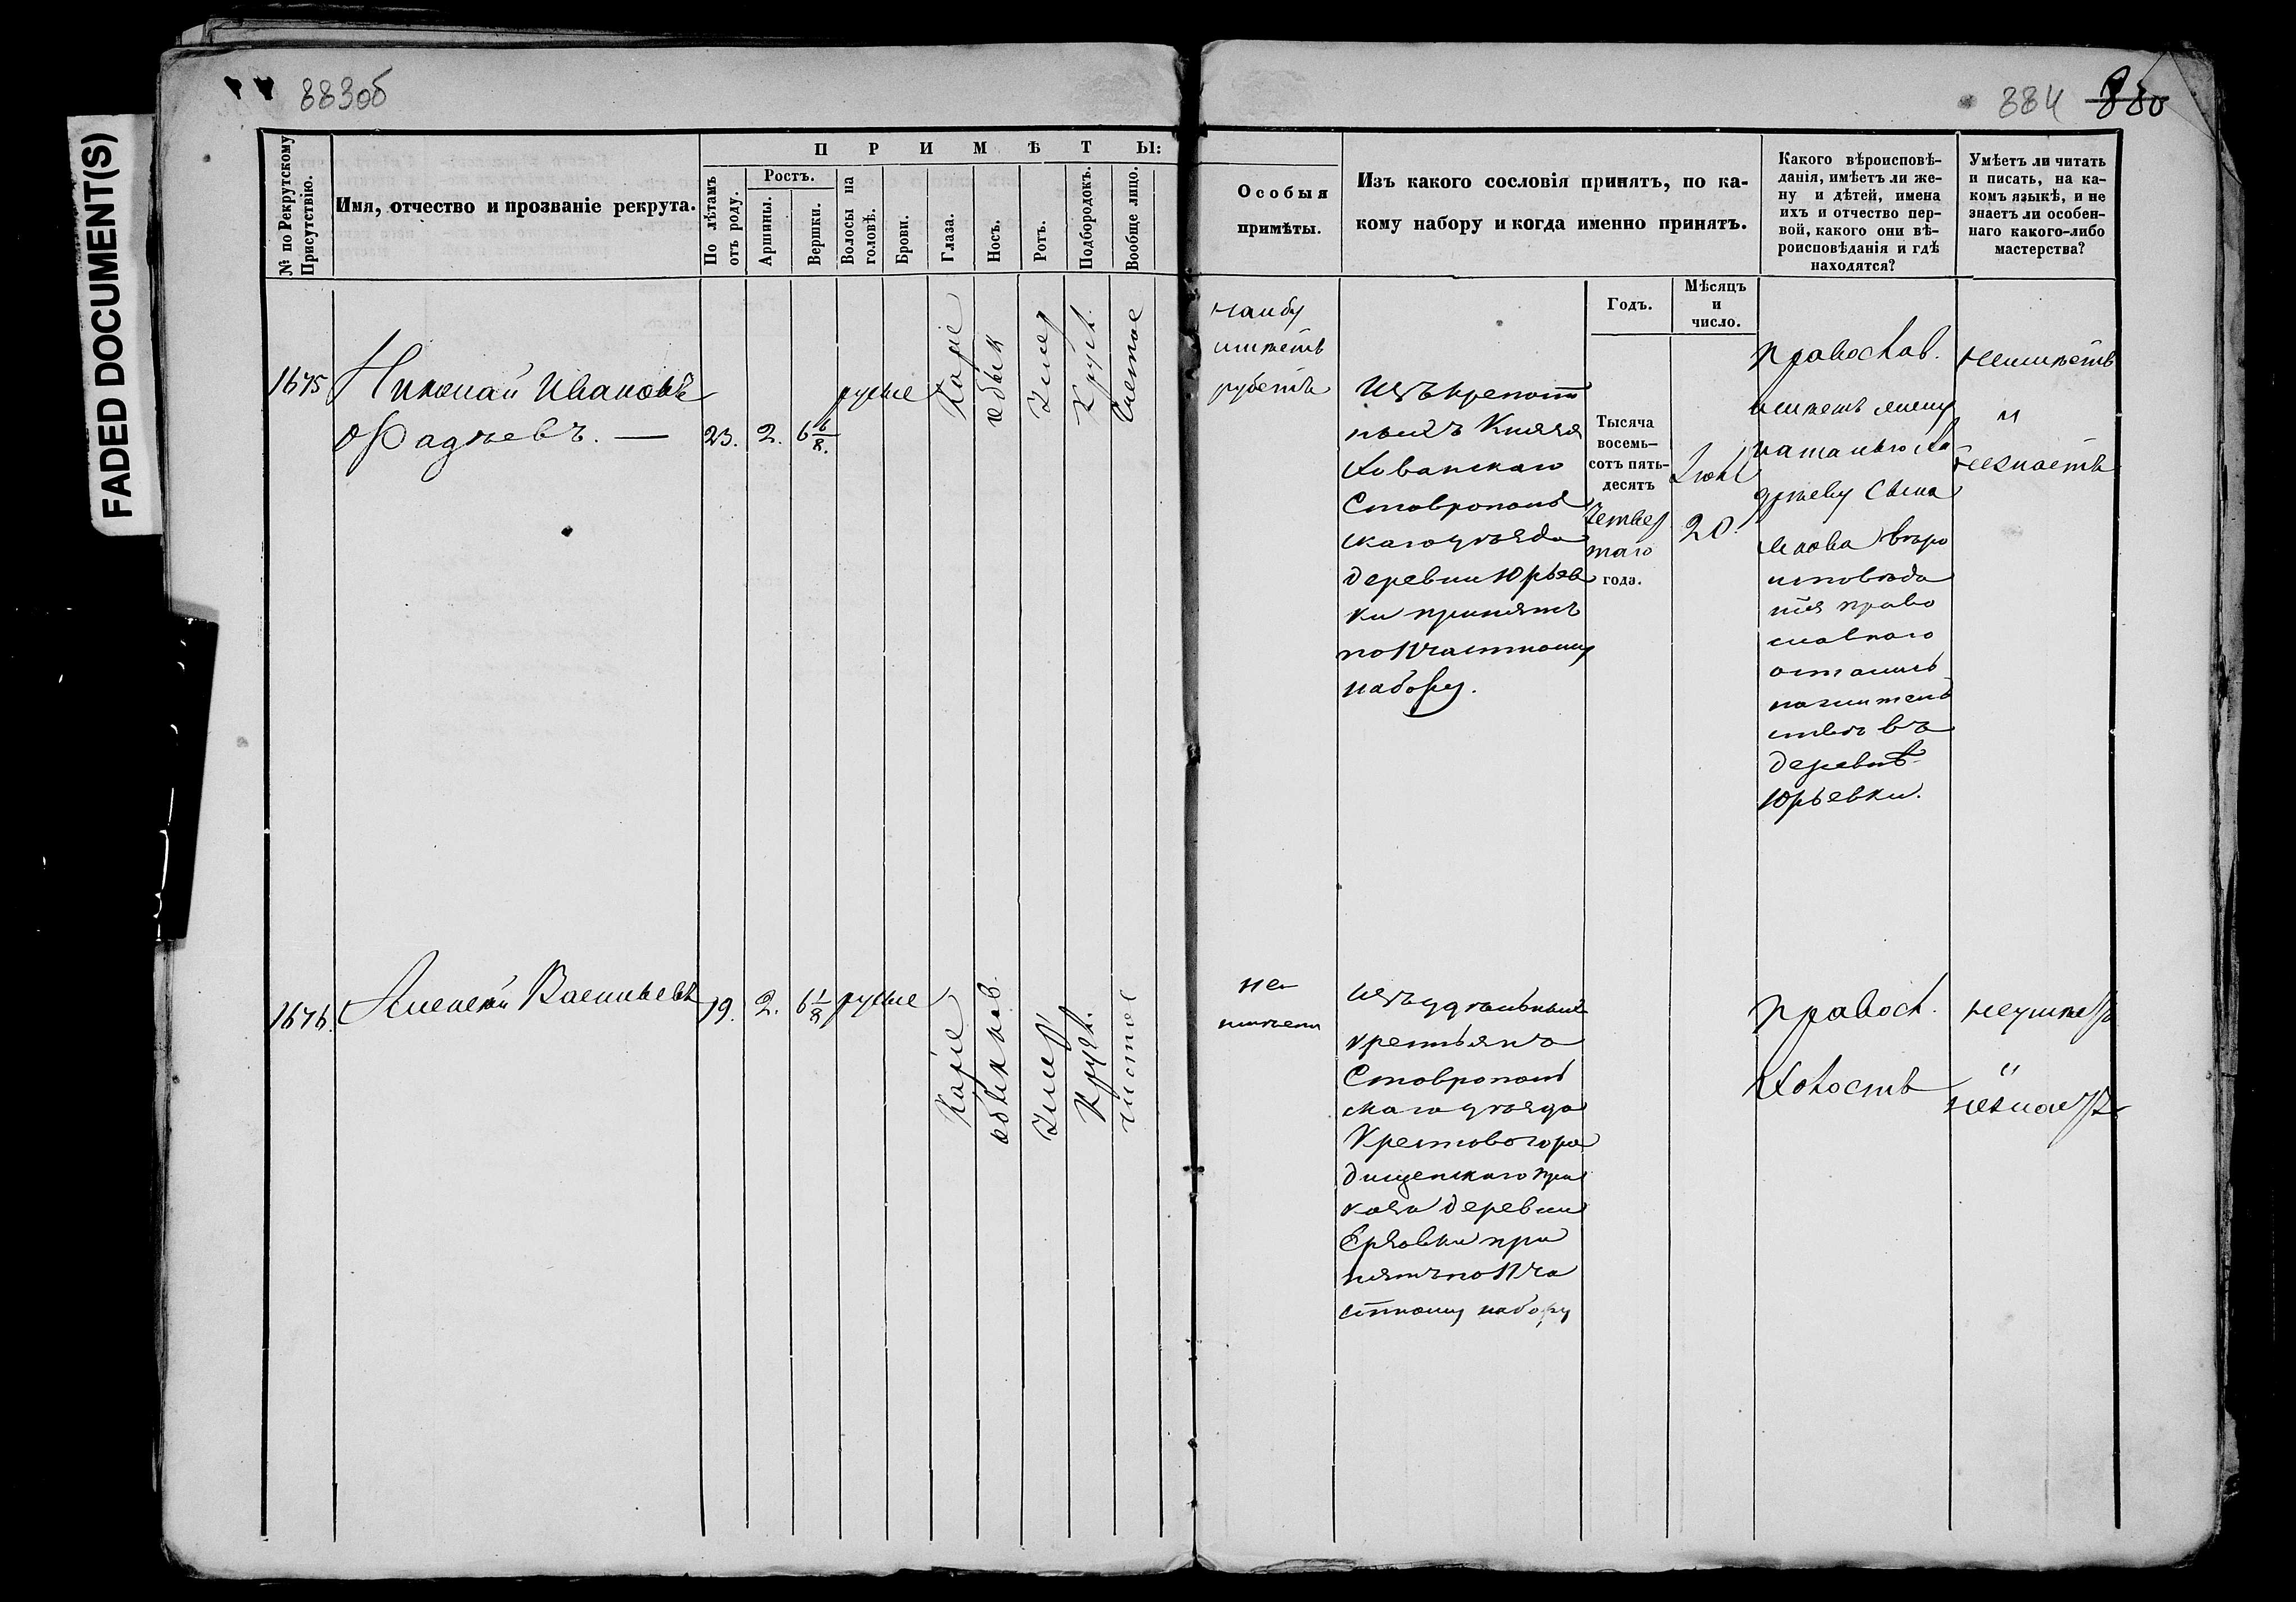 FADED DOCUMENT(S)
883об
884 880
№ по Рекрутскому Присутствію.
Имя, отчество и прозваніе рекрута.
ПРИМѢТЫ:
По лѣтамъ отъ роду.
Ростъ.
Аршины.
Вершки.
Волосы на головѣ.
Брови.
Глаза.
Носъ.
Ротъ.
Подбородокъ.
Вообще лицо.
Особыя
примѣты.
Изъ какого сословія принятъ, по ка-
кому набору и когда именно принятъ.
Какого вѣроисповѣ-
данія, имѣетъ ли же-
ну и дѣтей, имена
ихъ и отчество пер-
вой, какого они вѣ-
роисповѣданія и гдѣ
находятся?
Умѣетъ ли читать
и писать, на ка-
комъ языкѣ, и не
знаетъ ли особен-
наго какого-либо
мастерства?
Годъ.
Мѣсяцъ
и
число.
1675
Николай Ивановъ
Фадѣевъ. —
23. 2. 6 6/8.
русые
Каріе
обык
Умер
Кругл.
Чистое
на лбу
имѣетъ
рубетъ
Изъ крепост
ныхъ Князя
Хованскаго
Ставрополь
скаго уѣзда
деревни Юрьев
ки принятъ
по 11 частному
набору.
Тысяча
восемь-
сотъ пять-
десятъ
четвер
таго
года.
20.
православ.
имѣетъ жену
Наталью
сына
вѣро
исповѣда
нія право
славнаго
остались
на житель
ствѣ въ
деревнѣ
Юрьевки.
неумѣетъ
"
незнаетъ
1676.
Алексѣй Васильевъ
19. 2. 6 1/8
русые
Каріе
обыкнов.
Умер
Кругл.
чистое
не
имѣетъ
Изъ удѣльныхъ
крестьянъ
Ставрополь
скаго уѣзда
Крестовогоро
дищенскаго при
каза деревни
при
нятъ по 11 ча
стному набору
правосл.
Холостъ
неумѣетъ
"
незнаетъ